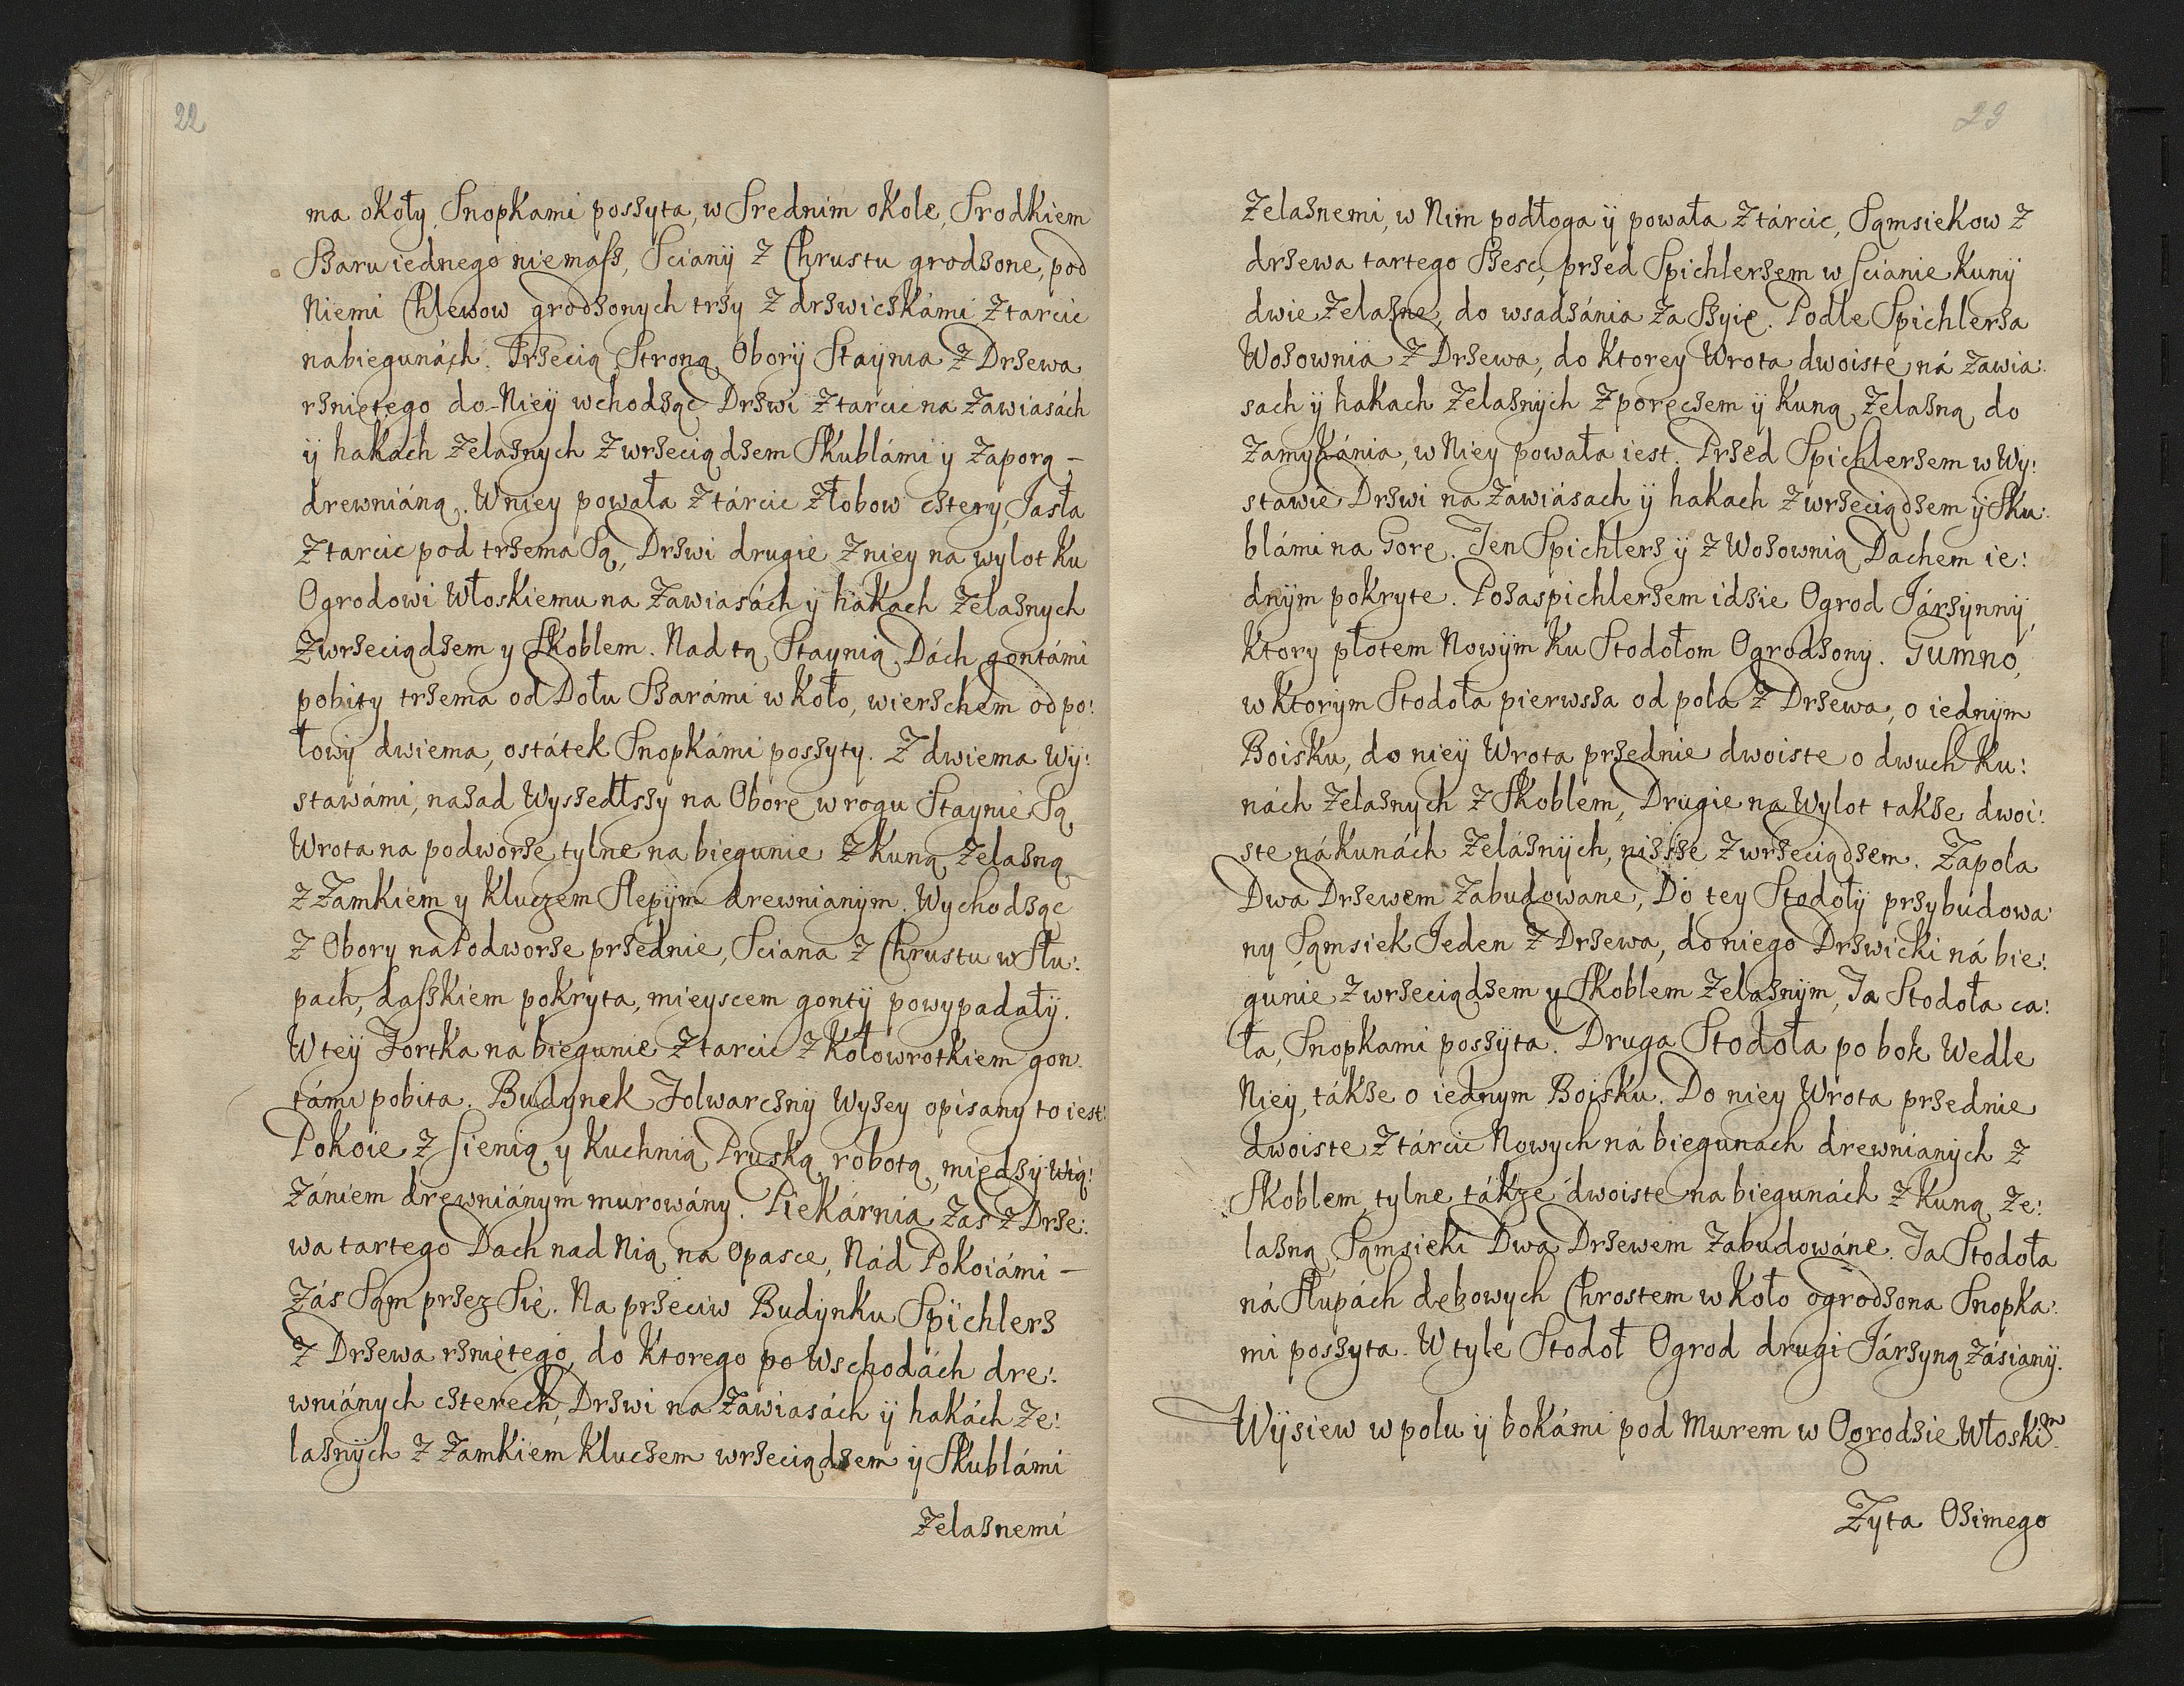 22
ma okoły, Snopkami poszyta, w Srednim okole, Srodkiem
Szaru iednego niemasz, Scianÿ z Chrustu grodzone, pod
Niemi Chlewow grodzonych trzy z drzwiczkámi z tarcic
na biegunách. Trzecią Stroną Oborÿ Staÿnia z Drzewa
rzniętego do Nieÿ wchodząc Drzwi z tarcic na Zawiasách
ÿ hakach Zelaznych z wrzeciądzem Skublámi ÿ Zaporą –
drewniáną. W niey powała z tárcic Złobow cztery, Jasła
z tarcic pod trzema Są, Drzwi drugie z niey na wylot ku
Ogrodowi Włoskiemu na Zawiasách ÿ hákach Zelaznych
z wrzeciądzem y Skoblem. Nad tą Staynią Dách gontámi
pobity trzema od Dołu Szarámi w koło, wierzchem od po:
łowÿ dwiema, ostátek Snopkámi poszyty. Z dwiema Wÿ:
stawámi, nazad Wyszedłszy na Oborę w rogu Staynie Są
Wrota na podworze tylne na biegunie z Kuną Zelazną
z Zamkiem y Kluczem Slepÿm drewnianym. Wychodząc
z Obory na Podworze przednie, Sciana z Chrustu w Słu:
pach, daszkiem pokryta, mieyscem gontÿ powypadałÿ.
W teÿ Fortka na biegunie z tarcic z Kołowrotkiem gon:
támi pobita. Budynek Folwarcznÿ Wyzey opisany to iest:
Pokoie z sienią y Kuchnią Pruską robotą, międzÿ wią:
zániem drewniánym murowány. Piekárnia zas z Drze:
wa tartego Dach nad Nią na Opasce, Nád Pokoiámi –
Zás Sąm przez Się. Na przeciw Budÿnku Spichlerz
z Drzewa rzniętego, do ktorego po Wschodách dre:
wniánych czterech, Drzwi na Zawiasách ÿ hakách Ze:
laznÿch z Zamkiem Kluczem wrzeciądzem ÿ Skublámi
Zelaznemi
23
Zelaznemi, w Nim podłoga ÿ powała z tárcic, Sąmsiekow z
drzewa tartego Szesc, przed Spichlerzem w scianie Kunÿ
dwie Zelazne, do wsadzánia Za Szyię. Podle Spichlerza
Wozownia z Drzewa, do ktorey Wrota dwoiste ná Zawia:
sach ÿ hakach Zelaznÿch z poręczem ÿ Kuną Zelazną do
Zamykánia, w Niey powała iest. Przed Spichlerzem w Wy:
stawie Drzwi na Zawiásach ÿ hakach z wrzeciądzem ÿ Sku:
blámi na Gorę. Ten Spichlerz ÿ z Wozownią Dachem ie:
dnÿm pokryte. Pozaspichlerzem idzie Ogrod Járzÿnnÿ,
Ktory płotem Nowÿm ku Stodołom Ogrodzony. Gumno,
w ktorÿm Stodoła pierwsza od pola z Drzewa, o iednÿm
Boisku, do nieÿ Wrota przednie dwoiste o dwuch Ku:
nách Zelaznych z Skoblem, Drugie na Wylot takze dwoi:
ste nákunách Zeláznÿch, nizsze z wrzeciądzem. Zapola
Dwa Drzewem Zabudowane, Do tey Stodołÿ przybudowa:
ny Sąmsiek Jeden z Drzewa, do niego Drzwicki ná bie:
gunie z wrzeciądzem y Skoblem Zelaznÿm, Ta Stodoła ca:
ła, Snopkami poszÿta. Druga Stodoła po bok Wedle
Nieÿ, tákze o iednym Boisku. Do niey Wrota przednie
dwoiste z tárcic Nowych ná biegunach drewnianych z
Skoblem, tylne tákze dwoiste na biegunách z Kuną Ze:
lazną Sąmsieki Dwa Drzewem Zabudowáne. Ta Stodoła
ná Słupách dębowych Chrostem w koło ogrodzona Snopka:
mi poszyta. W tyle Stodoł Ogrod drugi Járzyną Zásianÿ.
Wÿsiew w polu ÿ bokámi pod Murem w Ogrodzie Włoskim.
Zyta Ozimego